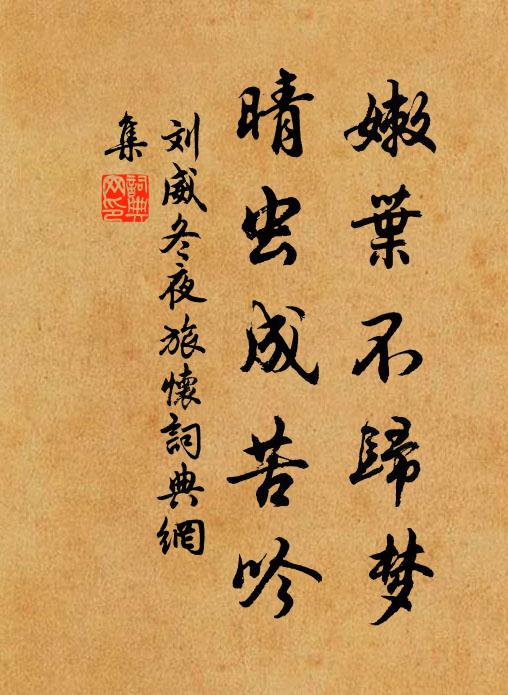 嫩葉不歸梦
晴虫成苦吟
刘威冬夜旅懷詞典網
集
詞典网印